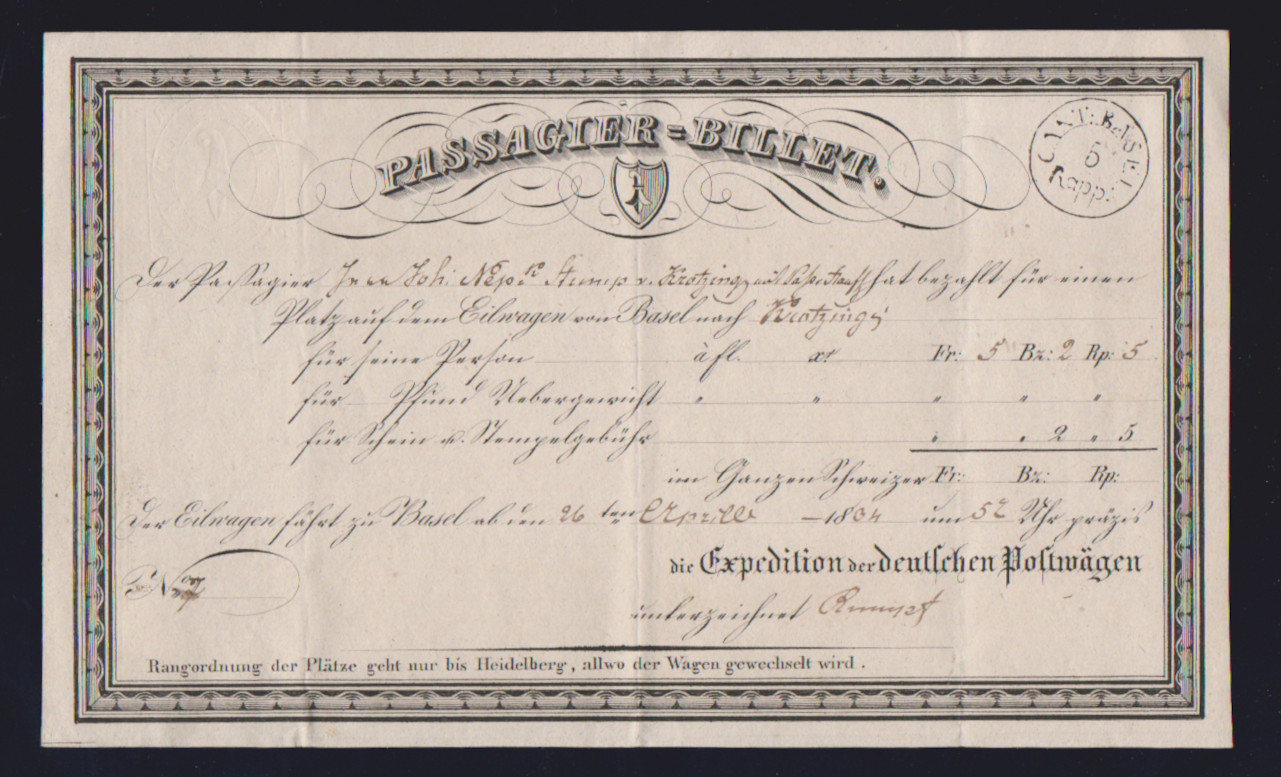 PASSAGIER=BILLET.
CANT: BASEL
5
Rapp:
Der Passagier Joh: Nep. Stump v. Krotzing hat bezahlt für einen
Platz auf dem Eilwagen von Basel nach Krotzing
für seine Person à fl. xr Fr: 5 Bz: 2 Rp: 5
für Pfund Uebergewicht " " " " "
für Schein u. Stempelgebühr " " 2 " 5
im Ganzen Schweizer Fr: Bz: Rp:
Der Eilwagen fährt zu Basel ab den 26 ten Aprill 1834 um Uhr präzis
die Expedition der deutschen Postwägen
No
unterzeichnet
Rangordnung der Plätze geht nur bis Heidelberg, allwo der Wagen gewechselt wird.